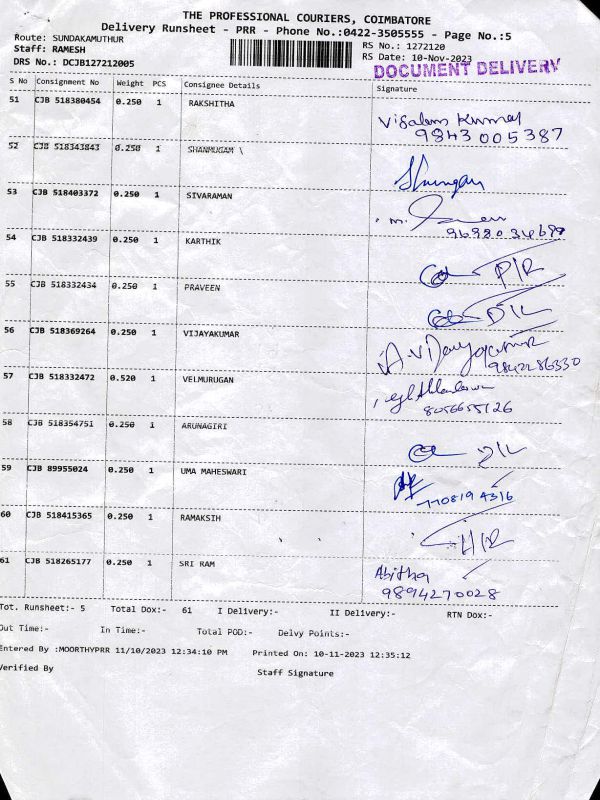 THE PROFESSIONAL COURIERS, COIMBATORE
Delivery Runsheet - PRR - Phone No.:0422-3505555 - Page No.:5
Route: SUNDAKAMUTHUR
RS No.: 1272120
Staff: RAMESH
RS Date: 10-Nov-2023
DRS No.: DCJB127212005
DOCUMENT DELIVERY
S No Consignment No Weight PCS Consignee Details Signature
51 CJB 518380454 0.250 1 RAKSHITHA
Kumar
9843005387
52 CJB 518343843 0.250 1 SHANMUGAM \
53 CJB 518403372 0.250 1 SIVARAMAN
m.
54 CJB 518332439 0.250 1 KARTHIK
55 CJB 518332434 0.250 1 PRAVEEN
56 CJB 518369264 0.250 1 VIJAYAKUMAR
A. Vijayakumar
9842286330
57 CJB 518332472 0.520 1 VELMURUGAN
8056655126
58 CJB 518354751 0.250 1 ARUNAGIRI
59 CJB 89955024 0.250 1 UMA MAHESWARI
7708194316
60 CJB 518415365 0.250 1 RAMAKSIH
61 CJB 518265177 0.250 1 SRI RAM
Abitha
9894270028
Tot. Runsheet:- 5 Total Dox:- 61 I Delivery:- II Delivery:- RTN Dox:-
Out Time:- In Time:- Total POD:- Delvy Points:-
Entered By :MOORTHYPRR 11/10/2023 12:34:10 PM Printed On: 10-11-2023 12:35:12
Verified By Staff Signature